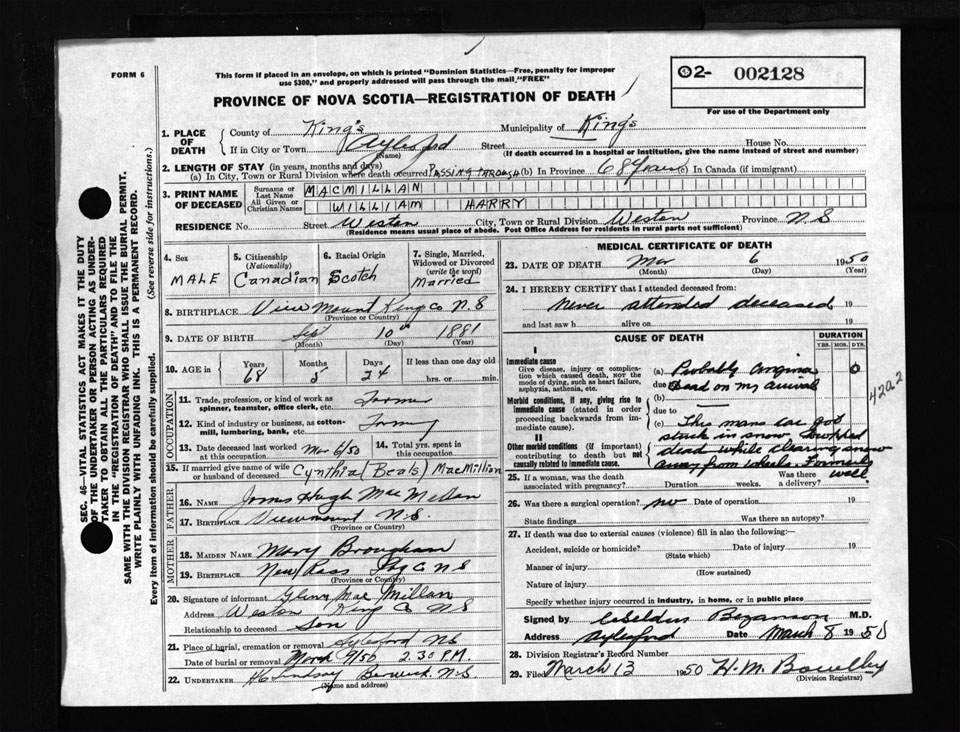 FORM 6
This form if placed in an envelope, on which is printed "Dominion Statistics—Free, penalty for improper
use $300," and properly addressed will pass through the mail "FREE"
2- 002128
For use of the Department only
PROVINCE OF NOVA SCOTIA—REGISTRATION OF DEATH
1. PLACE OF DEATH
County of King's Municipality of King's
If in City or Town Aylesford Street House No.
(Name) (If death occurred in a hospital or institution, give the name instead of street and number)
2. LENGTH OF STAY (in years, months and days)
(a) In City, Town or Rural Division where death occurred PASSING THROUGH (b) In Province 68 Years (c) In Canada (if immigrant)
3. PRINT NAME OF DECEASED
Surname or Last Name MACMILLAN
All Given or Christian Names WILLIAM HARRY
RESIDENCE No. Street Weston City, Town or Rural Division Weston Province N.S
(Residence means usual place of abode. Post Office Address for residents in rural parts not sufficient)
4. Sex MALE
5. Citizenship (Nationality) Canadian
6. Racial Origin Scotch
7. Single, Married, Widowed or Divorced (write the word) Married
8. BIRTHPLACE View Mount King Co N.S
(Province or Country)
9. DATE OF BIRTH Sept 10th 1881
(Month) (Day) (Year)
10. AGE in Years 68 Months 5 Days 24 If less than one day old hrs. or min.
OCCUPATION
11. Trade, profession or kind of work as spinner, teamster, office clerk, etc. Farmer
12. Kind of industry or business, as cotton-mill, lumbering, bank, etc. Farming
13. Date deceased last worked Mar 6/50
14. Total yrs. spent in this occupation
15. If married give name of wife or husband of deceased Cynthia (Beals) MacMillian
FATHER
16. Name James Hugh MacMillan
17. Birthplace Viewmount N.S.
(Province or Country)
MOTHER
18. Maiden Name Mary
19. Birthplace New Ross N S
(Province or Country)
20. Signature of informant Mac Millan
Address Weston King Co N S
Relationship to deceased Son
21. Place of burial, cremation or removal Aylesford NS
Date of burial or removal March 9/50 2.30 P.M.
22. UNDERTAKER Lindsay Berwick N.S.
(Name and address)
MEDICAL CERTIFICATE OF DEATH
23. DATE OF DEATH Mar 6 1950
(Month) (Day) (Year)
24. I HEREBY CERTIFY that I attended deceased from:
Never attended deceased 19
and last saw h alive on 19
CAUSE OF DEATH
DURATION
YRS. MOS. DYS.
I
Immediate cause
Give disease, injury or complication which caused death, not the mode of dying, such as heart failure, asphyxia, asthenia, etc.
(a) Probably Angina 0
due to Dead on my arrival
Morbid conditions, if any, giving rise to immediate cause (stated in order proceeding backwards from immediate cause).
(b) —
due to
(c) This mans car got
II
Other morbid conditions (if important) contributing to death but not causally related to immediate cause.
stuck in snow Dropped
dead while clearing snow
away from wheels. Formerly
well
420.2
25. If a woman, was the death associated with pregnancy? Duration weeks. Was there a delivery?
26. Was there a surgical operation? no Date of operation 19
State findings Was there an autopsy?
27. If death was due to external causes (violence) fill in also the following:—
Accident, suicide or homicide? Date of injury 19
(State which)
Manner of injury
(How sustained)
Nature of injury
Specify whether injury occurred in industry, in home, or in public place
Signed by Bezanson M.D.
Address Aylesford Date March 8 1950
28. Division Registrar's Record Number
29. Filed March 13 1950 H.M.
(Division Registrar)
SEC. 46—VITAL STATISTICS ACT MAKES IT THE DUTY
OF THE UNDERTAKER OR PERSON ACTING AS UNDER-
TAKER TO OBTAIN ALL THE PARTICULARS REQUIRED
IN THE "REGISTRATION OF DEATH" AND TO FILE THE
SAME WITH THE DIVISION REGISTRAR WHO SHALL ISSUE THE BURIAL PERMIT.
WRITE PLAINLY WITH UNFADING INK. THIS IS A PERMANENT RECORD.
Every item of information should be carefully supplied. (See reverse side for instructions.)